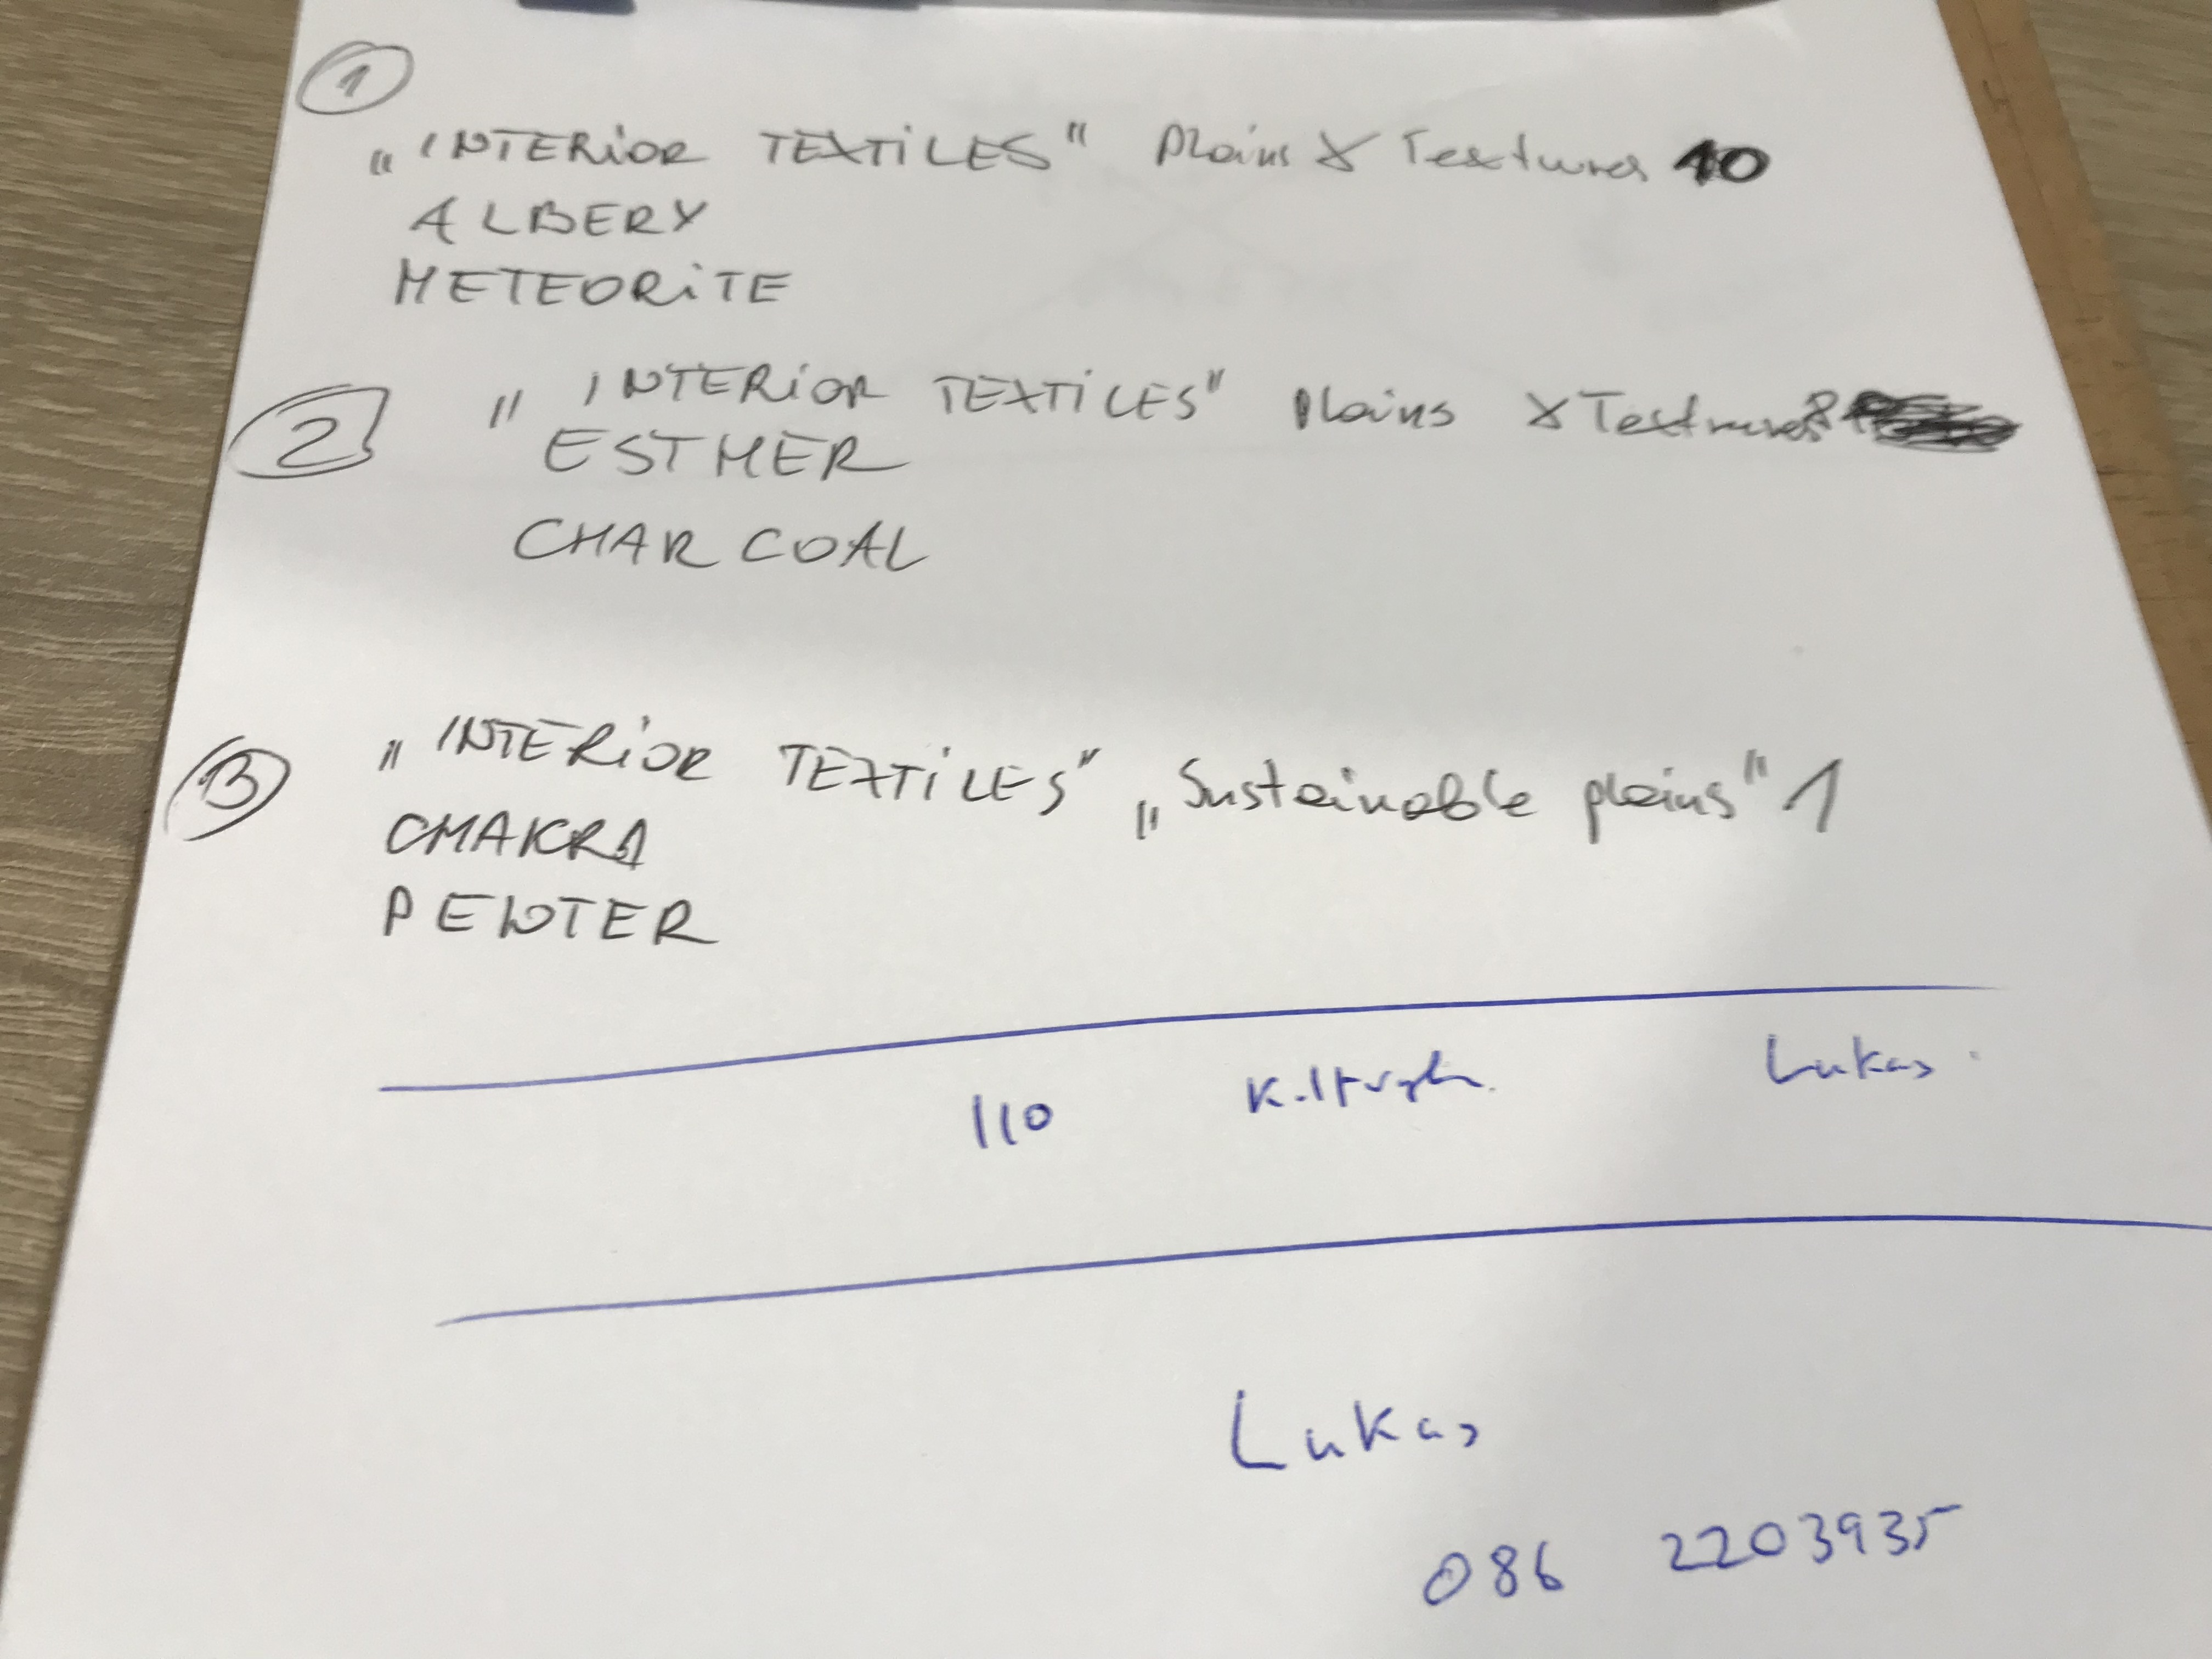 1
„INTERiOR TEXTiLES" Plains & Textures 10
ALBERY
METEORiTE
2 „INTERiOR TEXTiLES" Plains & Textures 8
ESTHER
CHARCOAL
3 „INTERiOR TEXTiLES" „Sustainable plains" 1
CHAKRA
PEWTER
110 Lukas
Lukas
086 2203935